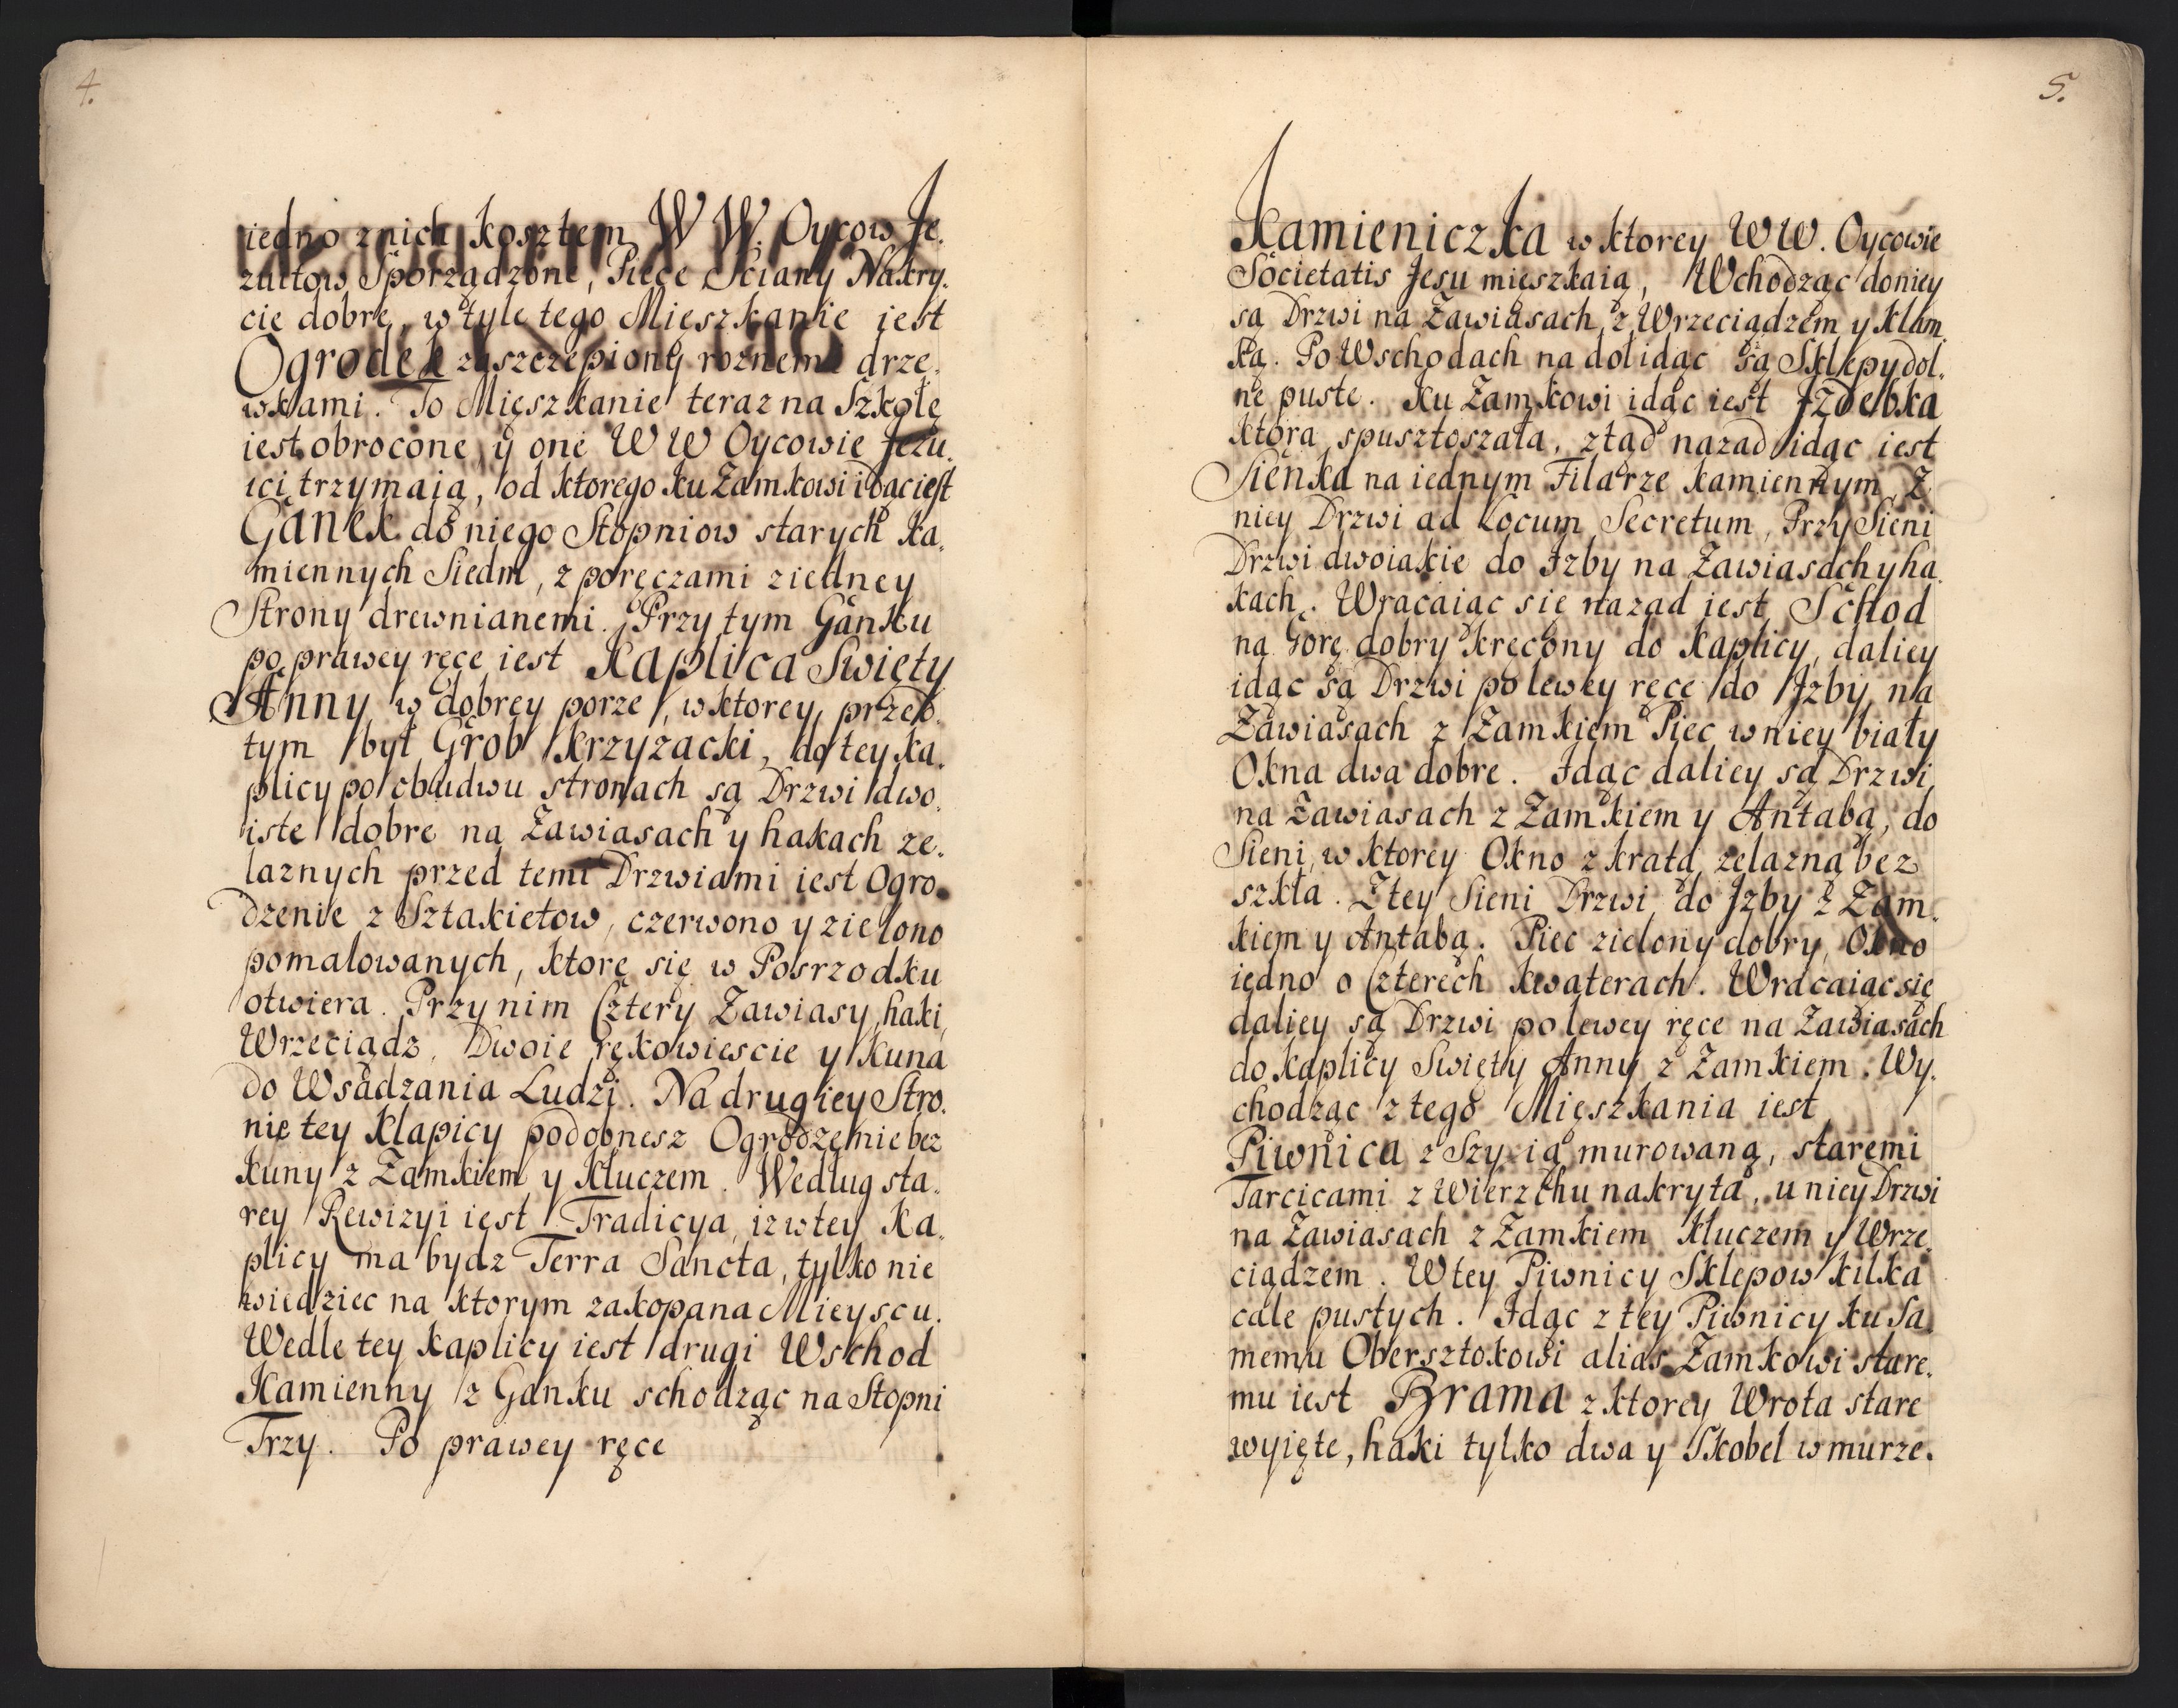 4.
iedno znich kosztem W W. Oycow Je,
zuitow Sporządzone, Piece Sciany Nakry,
cie dobre, w tyle tego Mieszkanie iest
Ogrodek zaszczepiony roznemi drze,
wkami. To Mieszkanie teraz na Szkołę
iest obrocone, y one W W Oycowie Jezu,
ici trzymaią, od ktorego ku Zamkowi idąc iest
Ganek do niego Stopniow starych ka,
miennych Siedm, z poręczami ziedney
Strony drewnianemi. Przy tym Ganku
po prawey ręce iest Kaplica Swięty
Anny w dobrey porze, w ktorey przed,
tym był Grob krzyzacki, do tey ka,
plicy po obudwu stronach są Drzwi dwo,
iste dobre na Zawiasach y hakach ze,
laznych przed temi Drzwiami iest Ogro,
dzenie z Sztakietow, czerwono y zielono
pomalowanych, ktore się w Posrzodku
otwiera. Przy nim Cztery Zawiasy, haki,
Wrzeciądz, Dwoie rękowiescie y Kuna
do Wsadzania Ludzi. Na drugiey Stro,
nie tey Klapicy podobnesz Ogrodzenie bez
kuny z Zamkiem y Kluczem. Według sta,
rey Rewizyi iest Tradicya, iz w tey Ka,
plicy ma bydz Terra Sancta, tylko nie
wiedziec na ktorym zakopana Mieyscu.
Wedle tey kaplicy iest drugi Wschod
Kamienny z Ganku schodząc na Stopni
Trzy. Po prawey ręce
5.
Kamieniczka w ktorey WW. Oycowie
Societatis Jesu mieszkaią, Wchodząc do niey
są Drzwi na Zawiasach z Wrzeciądzem y Klam,
ką. Po Wschodach na doł idąc są Sklepy dol,
ne puste. Ku Zamkowi idąc iest Jzdebka
ktora spusztoszała, ztąd nazad idąc iest
Sienka na iednym Filarze kamiennym, Z
niey Drzwi ad Locum Secretum, Przy Sieni
Drzwi dwoiakie do Jzby na Zawiasach y ha,
kach. Wracaiąc się nazad iest Schod
na Gorę dobry kręcony do kaplicy, daliey
idąc są Drzwi po lewey ręce do Jzby, na
Zawiasach z Zamkiem Piec w niey biały
Okna dwa dobre. Jdąc daliey są Drzwi
na Zawiasach z Zamkiem y Antabą, do
Sieni, w ktorey Okno z kratą zelazną bez
szkła. Z tey Sieni Drzwi do Jzby z Zam,
kiem y Antabą. Piec zielony dobry, Okno
iedno o Czterech kwaterach. Wracaiąc się
daliey są Drzwi po lewey ręce na Zawiasach
do Kaplicy Swięty Anny z Zamkiem. Wy,
chodząc z tego Mieszkania iest
Piwnica z Szyią murowaną, staremi
Tarcicami z Wierzchu nakryta, u niey Drzwi
na Zawiasach z Zamkiem Kluczem y Wrze,
ciądzem. W tey Piwnicy Sklepow kilka
cale pustych. Jdąc z tey Piwnicy ku Sa,
memu Obersztokowi alias Zamkowi stare,
mu iest Brama z ktorey Wrota stare
wyięte, haki tylko dwa y Skobel w murze.